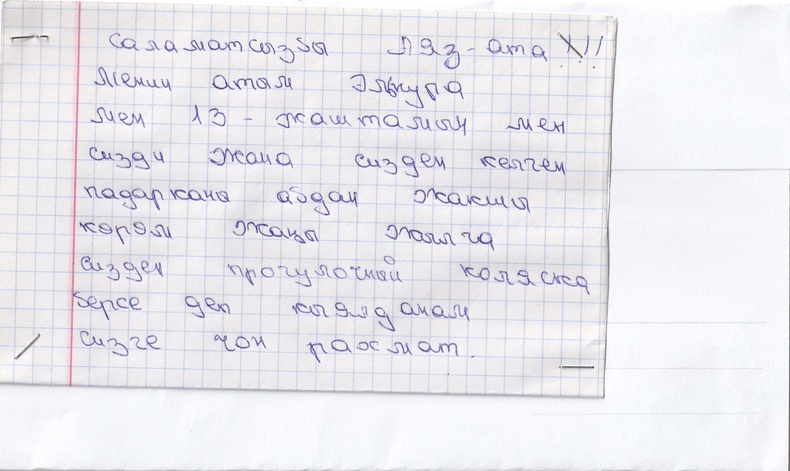 Саламатсызбы Аяз-ата !!!
Менин атым Элнура
мен 13-жаштамын мен
сизди жана сизден келген
падаркана абдан жакшы
көрөм жаңы жылга
сизден прогулочный коляска
берсе деп кыялданам
сизге чоң рахмат.